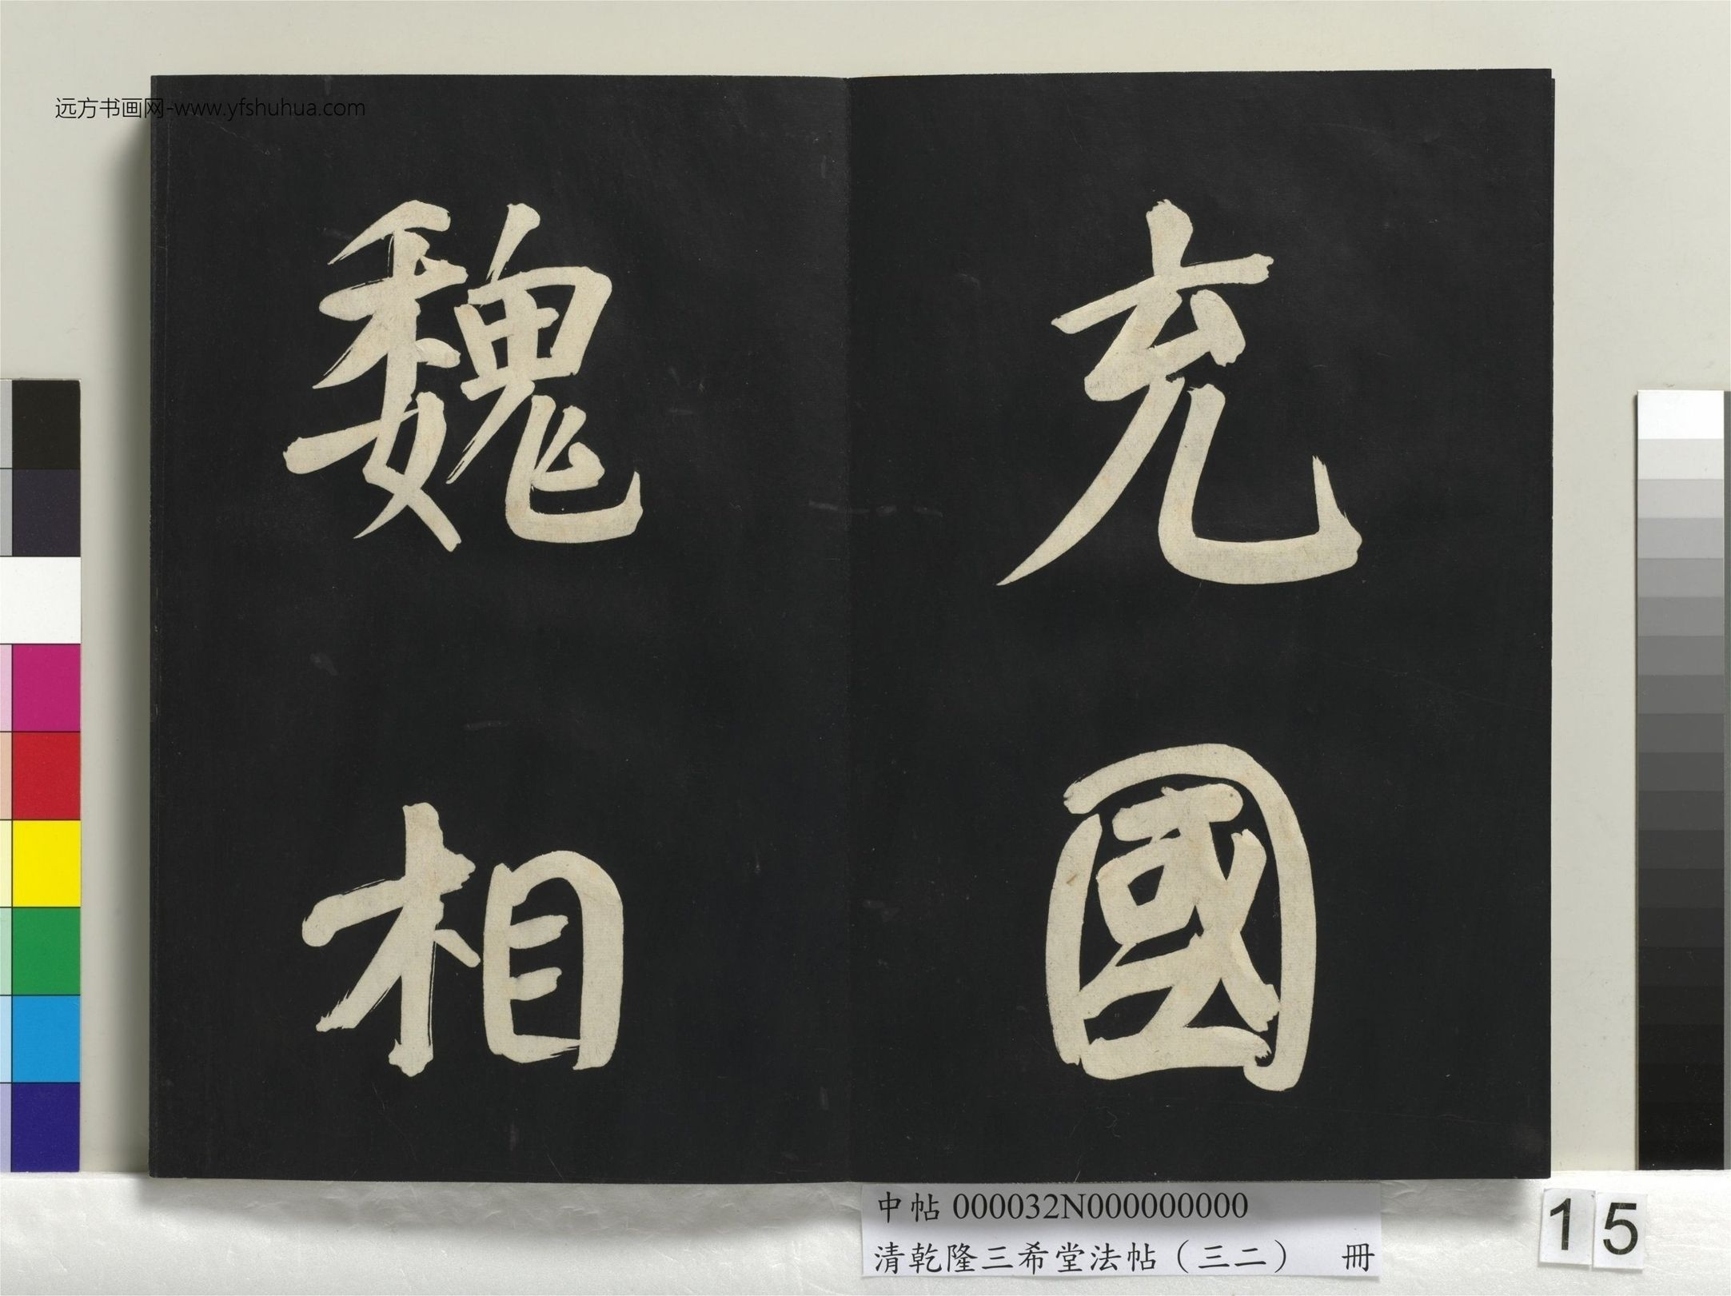 远方书画网-www.yfshuhua.com
充國
魏相
中帖 000032N000000000
清乾隆三希堂法帖（三二） 冊
15